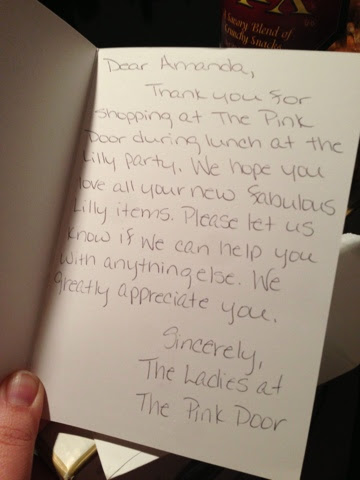 A Savory Blend of
Crunchy Snacks
Dear Amanda,
Thank you for
shopping at The Pink
Door during lunch at the
Lilly party. We hope you
love all your new fabulous
Lilly items. Please let us
know if we can help you
with anything else. We
greatly appreciate you.
Sincerely,
The Ladies at
The Pink Door